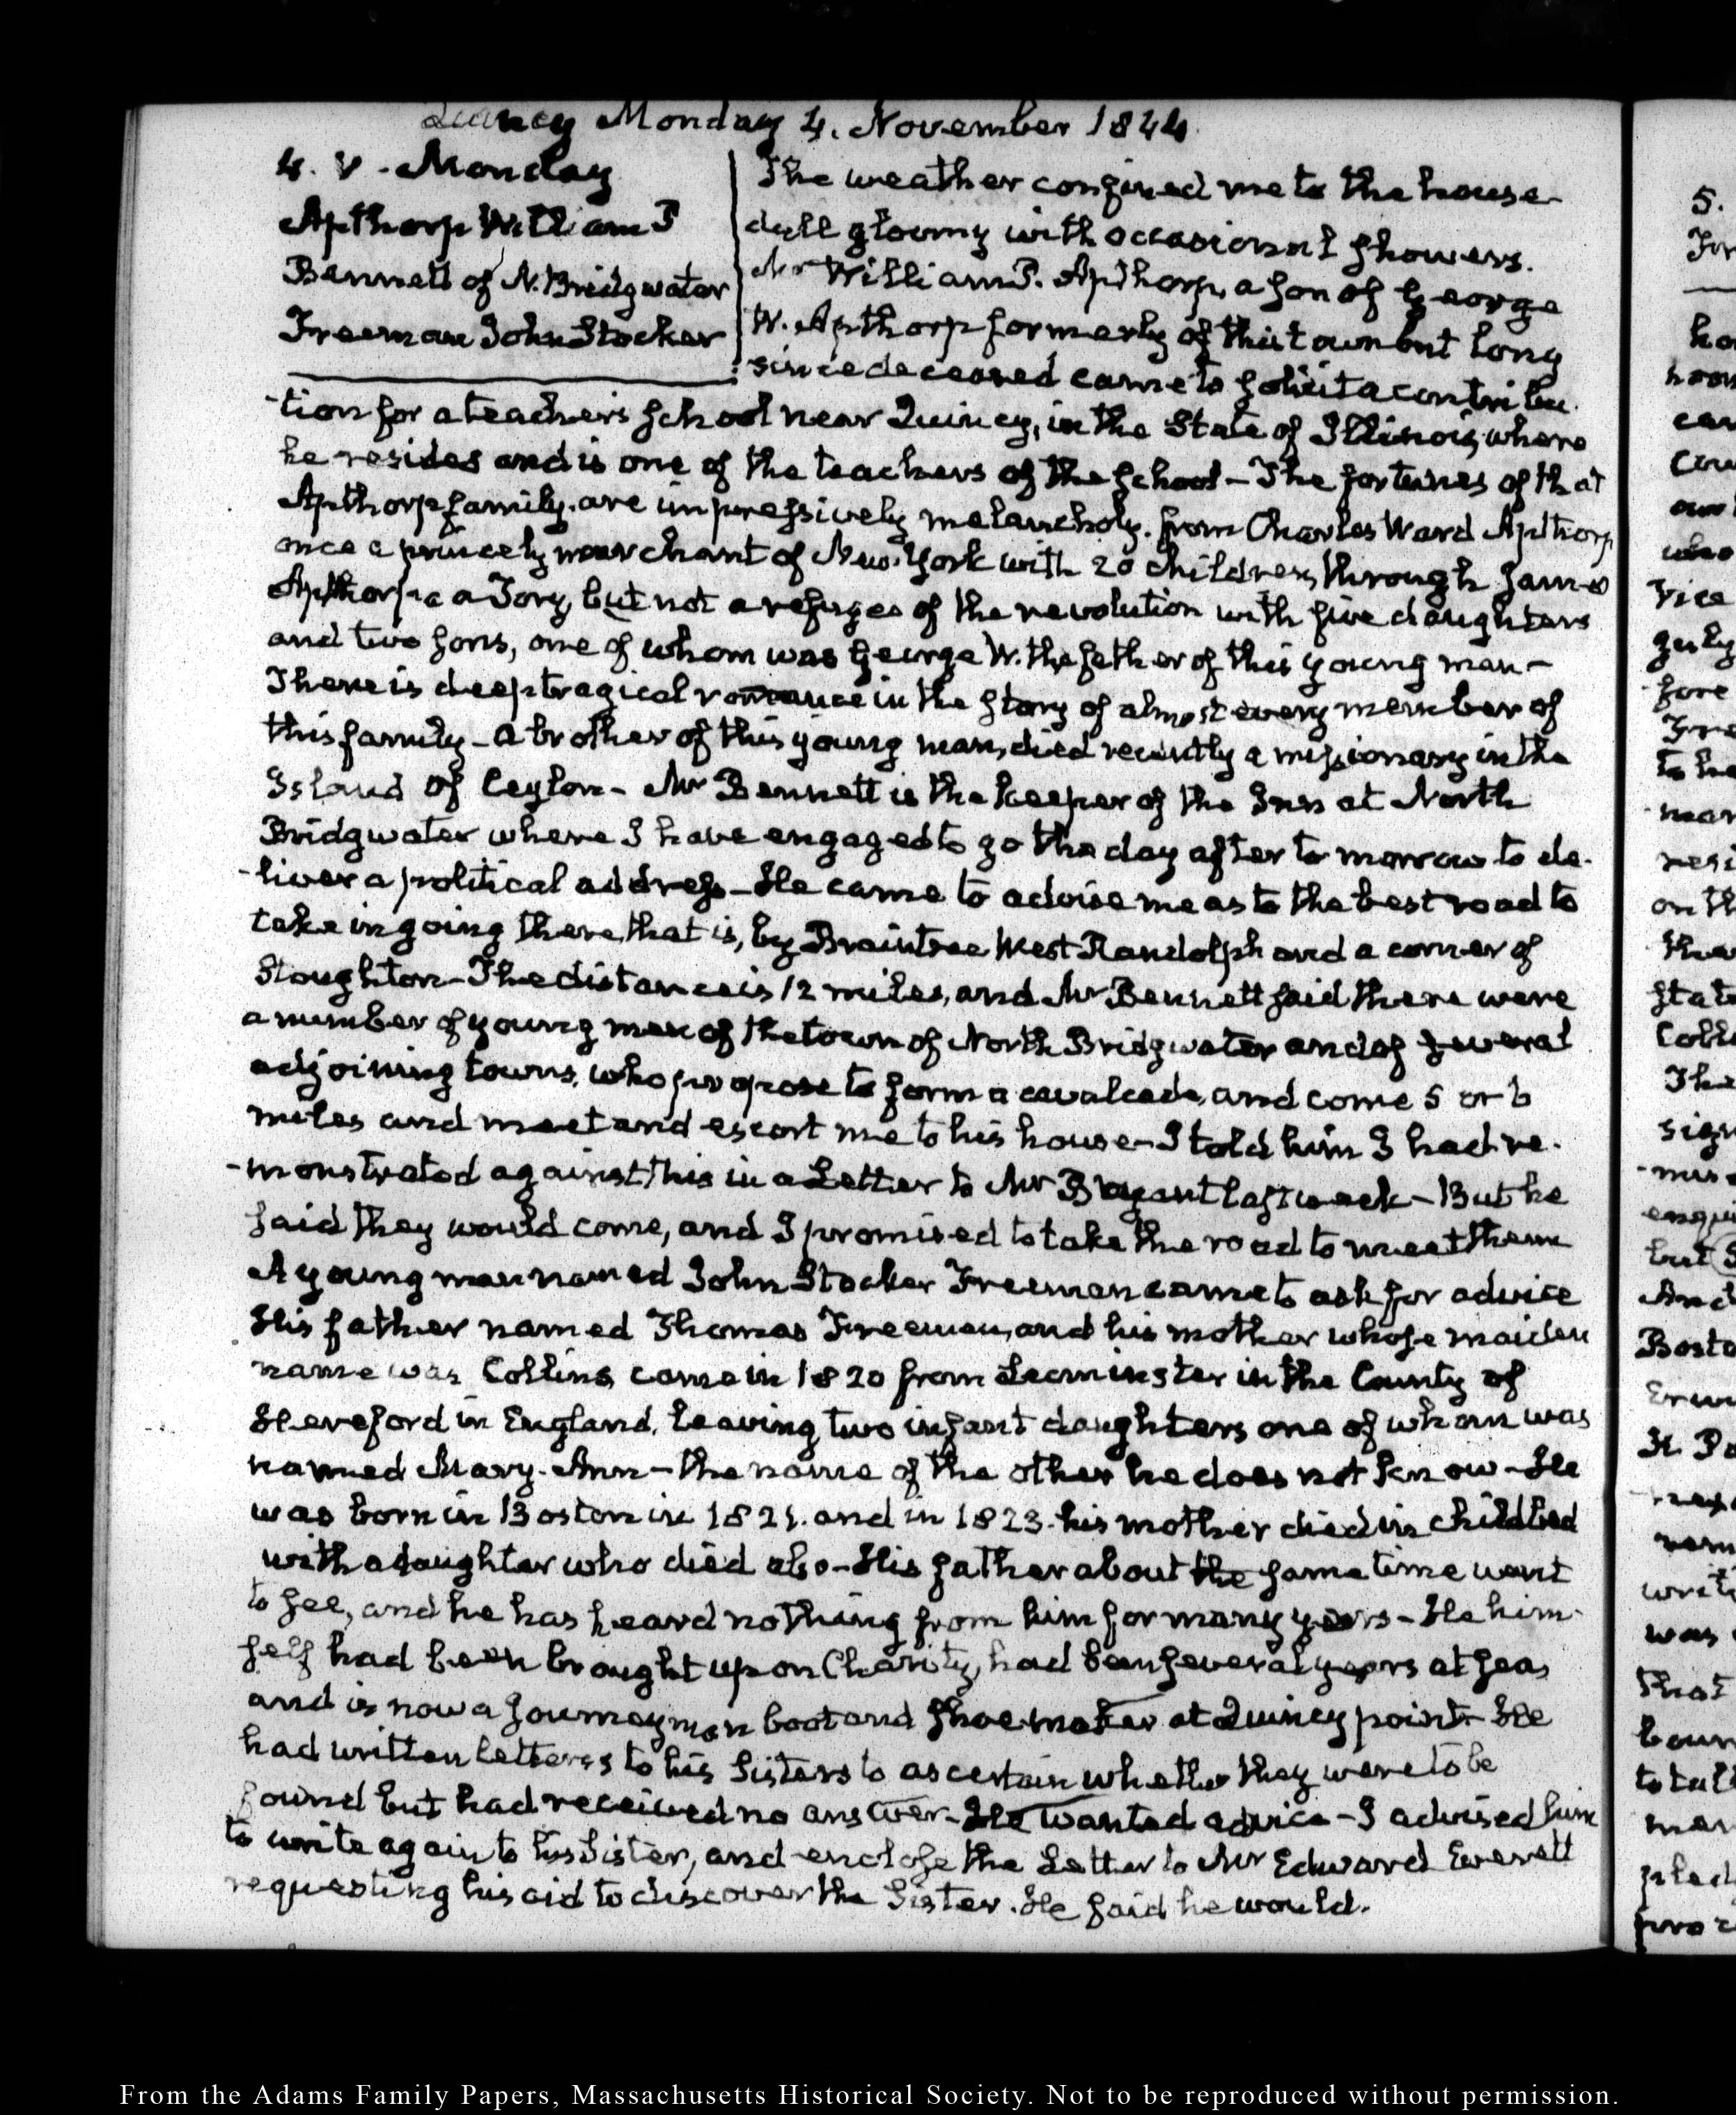 Quincy Monday 4. November 1844.
4. V. Monday
Apthorp William P
Bennett of N. Bridgwater
Freeman John Stocker
The weather confined me to the house
dull gloomy with occasional showers.
Mr William P. Apthorp, a son of George
W. Apthorp formerly of this town but long
since deceased came to solicit a contribu
-tion for a teacher's school near Quincy, in the State of Illinois, where
he resides and is one of the teachers of the school – The fortunes of that
Apthorp family are impressively melancholy. from Charles Ward Apthorp
once a princely merchant of New-York with 20 children, through James
Apthorp a Tory, but not a refugee of the revolution with five daughters
and two sons, one of whom was George W. the father of this young man –
There is deep tragical romance in the story of almost every member of
this family – A brother of this young man, died recently a missionary in the
Island of Ceylon – Mr Bennett is the keeper of the Inn at North
Bridgwater where I have engaged to go the day after to-morrow to de-
-liver a political address – He came to advise me as to the best road to
take in going there, that is, by Braintree West Randolph and a corner of
Stoughton – The distance is 12 miles, and Mr Bennett said there were
a number of young men of the town of North Bridgwater and of several
adjoining towns, who propose to form a cavalcade, and come 5 or 6
miles and meet and escort me to his house – I told him I had re-
-monstrated against this in a Letter to Mr Bryant last week – But he
said they would come, and I promised to take the road to meet them
A young man named John Stocker Freeman came to ask for advice
His father named Thomas Freeman, and his mother whose maiden
name was Collins came in 1820 from Leominster in the County of
Hereford in England, leaving two infant daughters one of whom was
named Mary-Ann – the name of the other he does not know – He
was born in Boston in 1821. and in 1823. his mother died in childbed
with a daughter who died also – His father about the same time went
to sea, and he has heard nothing from him for many years – He him-
self had been brought up on Charity, had been several years at sea,
and is now a journeyman boot and shoemaker at Quincy point – He
had written letters to his Sisters to ascertain whether they were to be
found but had received no answer – He wanted advice – I advised him
to write again to his Sister, and enclose the Letter to Mr Edward Everett
requesting his aid to discover the Sister. He said he would.
5.
From the Adams Family Papers, Massachusetts Historical Society. Not to be reproduced without permission.